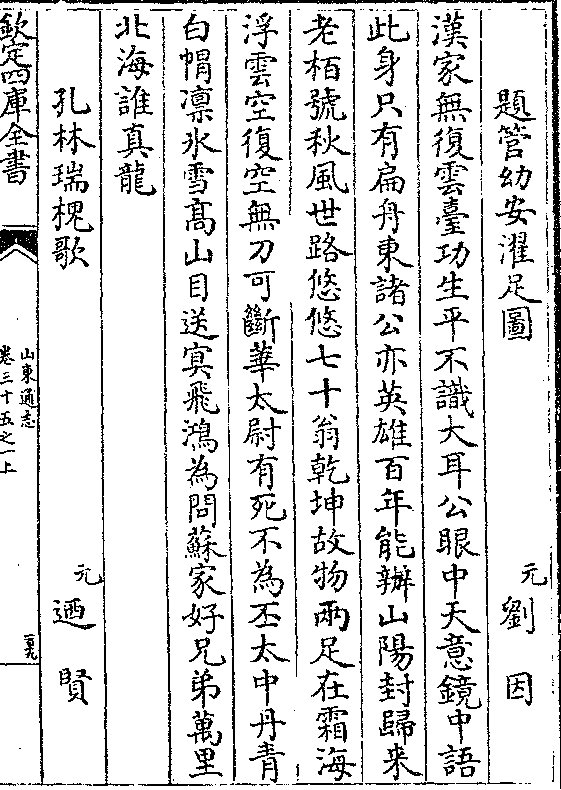 題管幼安濯足圖 元 劉因
漢家無復雲臺功生平不識大耳公眼中天意鏡中語
此身只有扁舟東諸公亦英雄百年能辦山陽封歸来
老栢號秋風世路悠悠七十翁乾坤故物兩足在霜海
浮雲空復空無刀可斷華太尉有死不為丕太中丹青
白㡌凛氷雪髙山目送㝠飛鴻為問蘇家好兄弟萬里
北海誰真龍
孔林瑞槐歌 元 迺賢
欽定四庫全書
山東通志
卷三十五之一上
百九